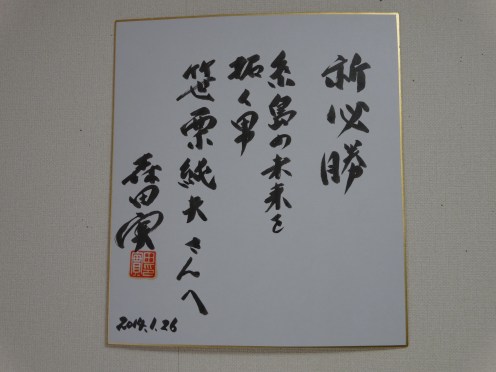 祈必勝
糸島の未来を
拓く男
笹栗純夫さんへ
森田実
2014.1.26